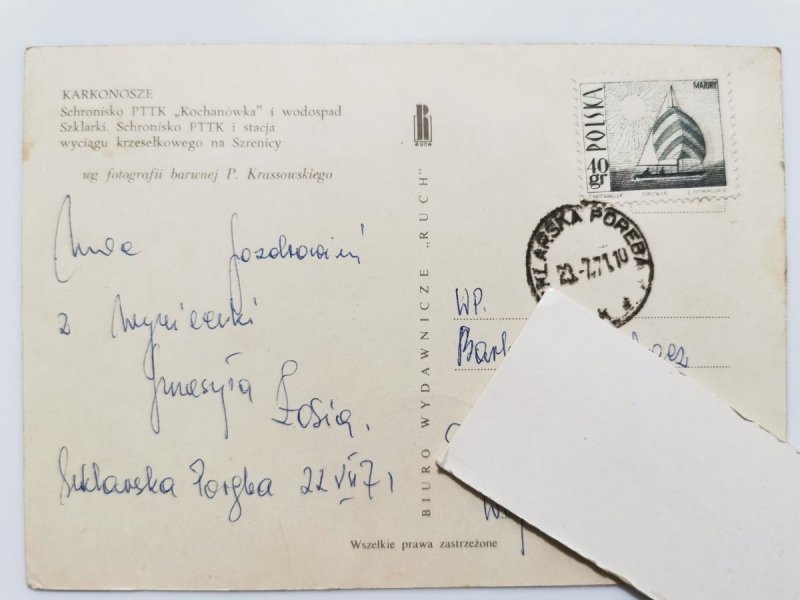 KARKONOSZE
Schronisko PTTK „Kochanówka" i wodospad
Szklarki. Schronisko PTTK i stacja
wyciągu krzesełkowego na Szrenicy
wg fotografii barwnej P. Krassowskiego
pozdrowień
z wycieczki
Zosia.
Szklarska Poręba 22 VII 71
RUCH
BIURO WYDAWNICZE „RUCH"
Wszelkie prawa zastrzeżone
MAZURY
POLSKA
40 gr
SZKLARSKA PORĘBA
23.-7.71.10
WP.